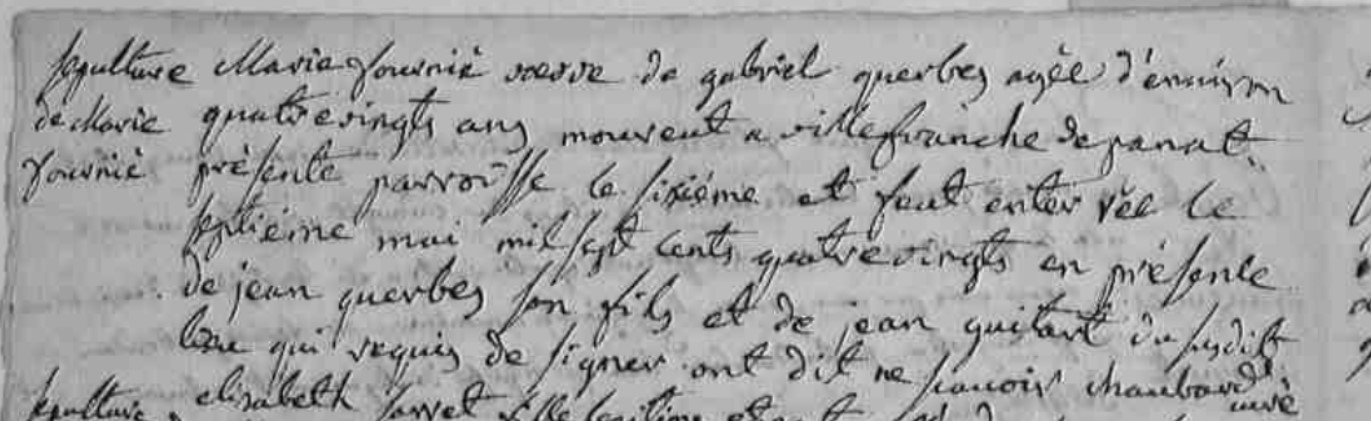 sepulture Marie fournié veuve de gabriel querbes agèe d'environ
de Marie quatrevingts ans mourent a villefranche de panat
fournié présente parroisse le sixiéme et feut enterrèe le
septiéme mai mil sept cents quatrevingts en présente
de jean querbes son fils et de jean guitart du susdit
lieu qui requis de signer ont dit ne scauoir chaubard curé
sepulture elisabeth sarret fille legitime et